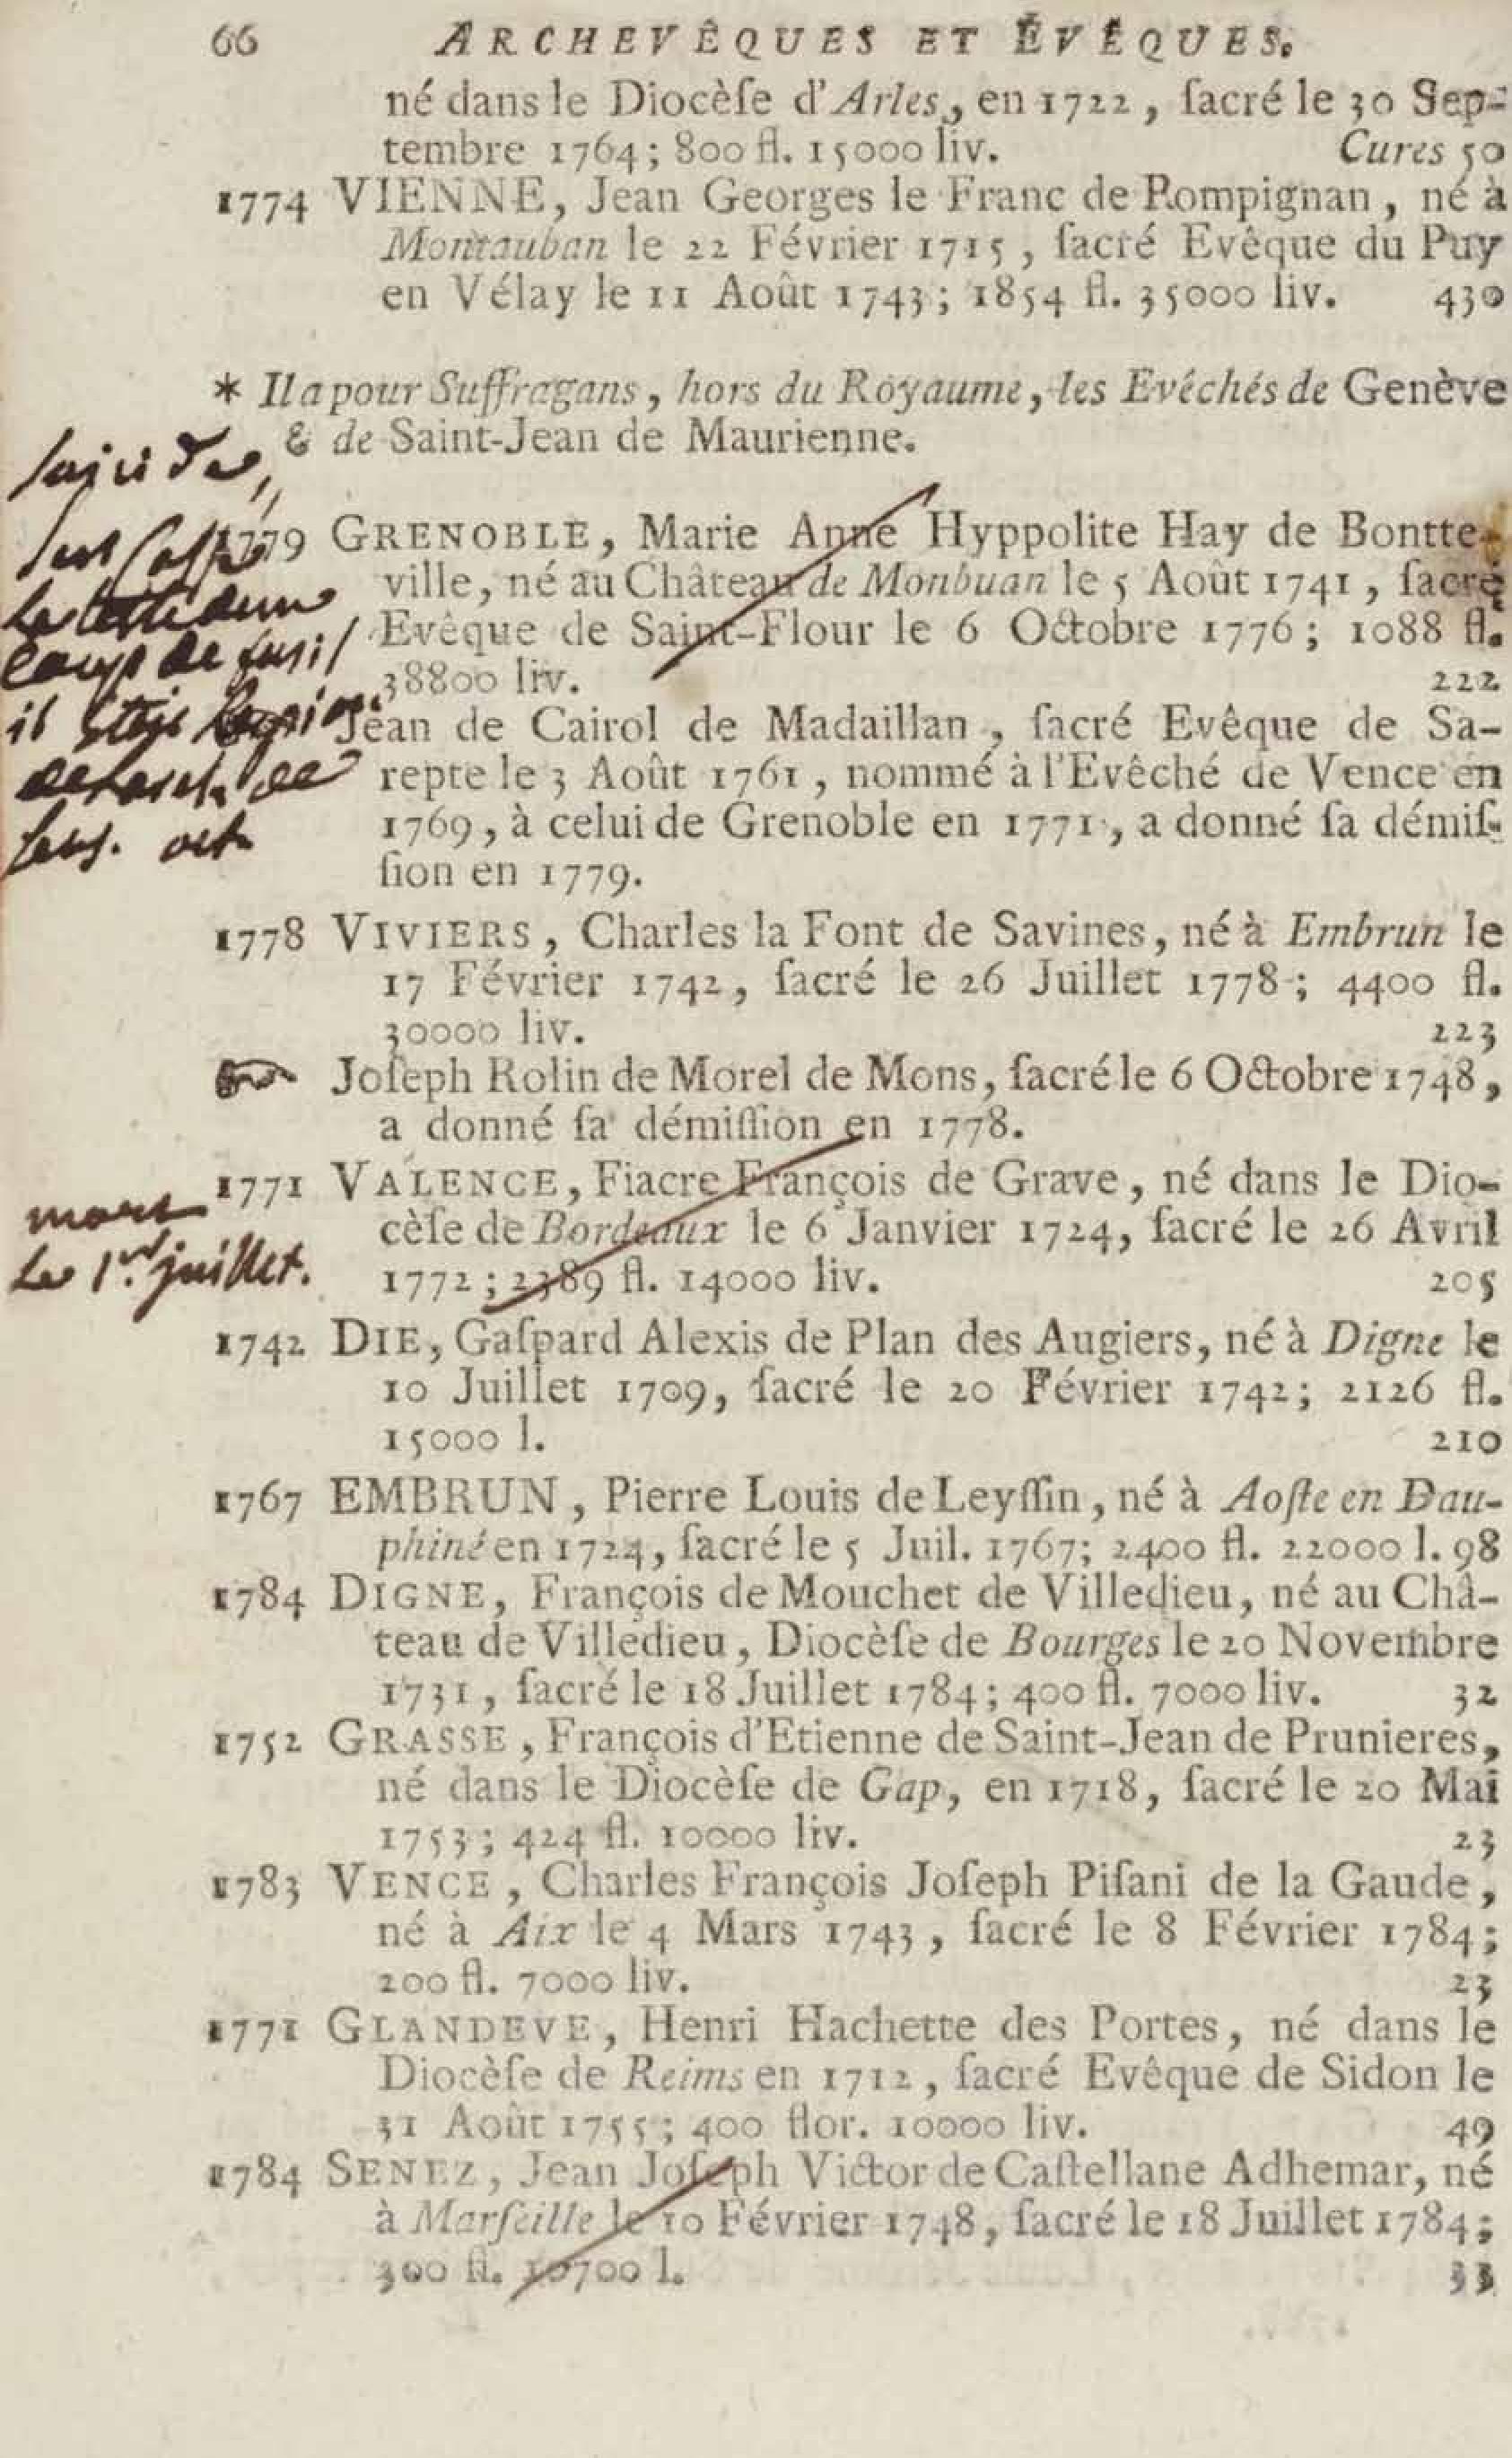 66 ARCHEVÊQUES ET ÉVÊQUES.
né dans le Diocèſe d'Arles, en 1722, ſacré le 30 Sep-
tembre 1764; 800 fl. 15000 liv. Cures 50
1774 VIENNE, Jean Georges le Franc de Pompignan, né à
Montauban le 22 Février 1715, ſacré Evêque du Puy
en Vélay le 11 Août 1743; 1854 fl. 35000 liv. 430
* Il a pour Suffragans, hors du Royaume, les Evêchés de Genève
& de Saint-Jean de Maurienne.
1779 GRENOBLE, Marie Anne Hyppolite Hay de Bontte-
ville, né au Château de Monbuan le 5 Août 1741, ſacré
Evêque de Saint-Flour le 6 Octobre 1776; 1088 fl.
38800 liv. 222
Jean de Cairol de Madaillan, ſacré Evêque de Sa-
repte le 3 Août 1761, nommé à l'Evêché de Vence en
1769, à celui de Grenoble en 1771, a donné ſa démiſ-
ſion en 1779.
la tête d'un
coup de fusil
il
de
1778 VIVIERS, Charles la Font de Savines, né à Embrun le
17 Février 1742, ſacré le 26 Juillet 1778; 4400 fl.
30000 liv. 223
☞ Joſeph Rolin de Morel de Mons, ſacré le 6 Octobre 1748,
a donné ſa démiſſion en 1778.
1771 VALENCE, Fiacre François de Grave, né dans le Dio-
cèſe de Bordeaux le 6 Janvier 1724, ſacré le 26 Avril
1772; 2389 fl. 14000 liv. 205
mort
le 1er juillet.
1742 DIE, Gaſpard Alexis de Plan des Augiers, né à Digne le
10 Juillet 1709, ſacré le 20 Février 1742; 2126 fl.
15000 l. 210
1767 EMBRUN, Pierre Louis de Leyſſin, né à Aoſte en Dau-
phiné en 1724, ſacré le 5 Juil. 1767; 2400 fl. 22000 l. 98
1784 DIGNE, François de Mouchet de Villedieu, né au Châ-
teau de Villedieu, Diocèſe de Bourges le 20 Novembre
1731, ſacré le 18 Juillet 1784; 400 fl. 7000 liv. 32
1752 GRASSE, François d'Etienne de Saint-Jean de Prunieres,
né dans le Diocèſe de Gap, en 1718, ſacré le 20 Mai
1753; 424 fl. 10000 liv. 23
1783 VENCE, Charles François Joſeph Piſani de la Gaude,
né à Aix le 4 Mars 1743, ſacré le 8 Février 1784;
200 fl. 7000 liv. 23
1771 GLANDEVE, Henri Hachette des Portes, né dans le
Diocèſe de Reims en 1712, ſacré Evêque de Sidon le
31 Août 1755; 400 flor. 10000 liv. 49
1784 SENEZ, Jean Joſeph Victor de Caſtellane Adhemar, né
à Marſeille le 10 Février 1748, ſacré le 18 Juillet 1784;
300 fl. 10700 l. 33